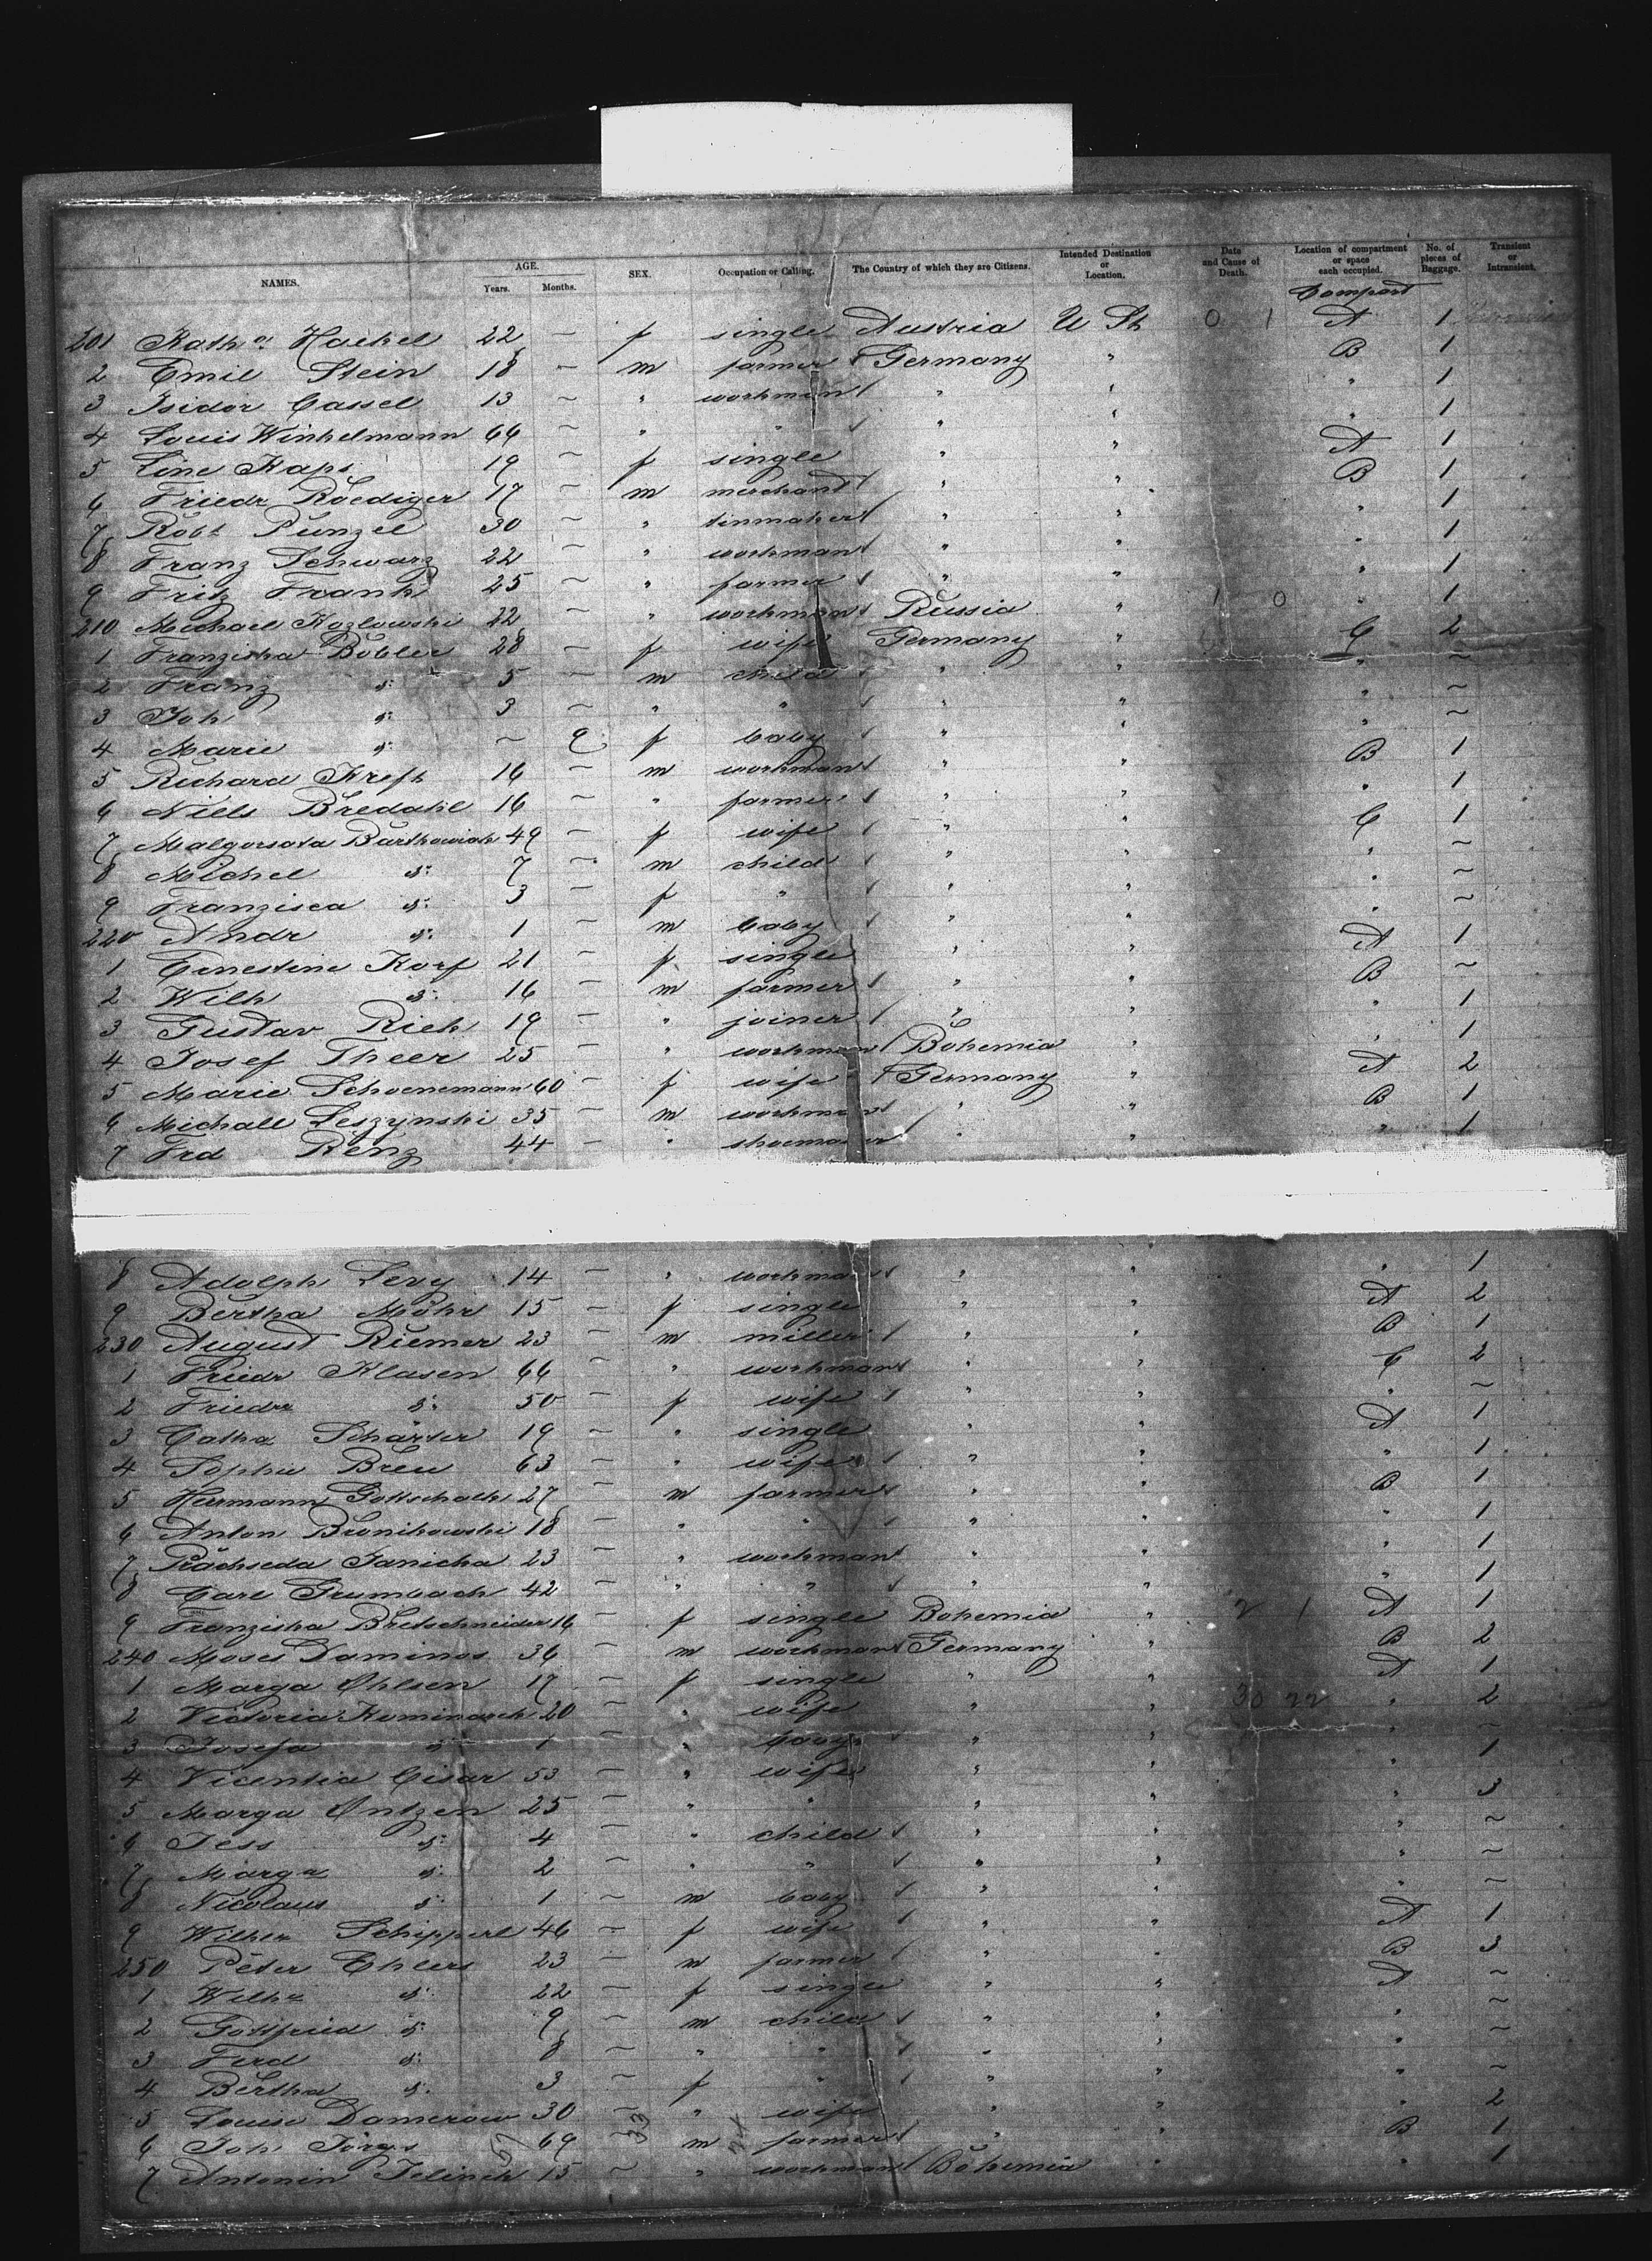 NAMES. AGE. Years. Months. SEX. Occupation or Calling. The Country of which they are Citizens. Intended Destination or Location. Date and Cause of Death. Location of compartment or space each occupied. No. of pieces of Baggage. Transient or Intransient.
Compart
201 Katha Hackel 22 – f single Austria U St 0 1 A 1
2 Emil Stein 18 – m farmer Germany " B 1
3 Isidor Cassel 13 – " workman " " " 1
4 Louis Winkelmann 66 – " " " " " 1
5 Line Kaps 19 – f single " " A 1
6 Friedr Roediger 17 – m merchant " " B 1
7 Robt Punzel 30 – " tinmaker " " " 1
8 Franz Schwarz 22 – " workman " " " 1
9 Fritz Frank 25 – " farmer " " " 1
210 Michael Kozlowski 22 – " workman Russia " 1 0 " 1
1 Franziska Bobler 28 – f wife Germany " C 2
2 Franz d: 5 – m child " " " –
3 Joh d: 3 – " " " " " –
4 Marie d: – 9 f baby " " " –
5 Richard Kreft 16 – m workman " " B 1
6 Niels Bredahl 16 – " farmer " " " 1
7 Malgorsata Bartkowiak 49 – f wife " " C 1
8 Michel d: 7 – m child " " " –
9 Franzisca d: 3 – f " " " " –
220 Andr d: 1 – m baby " " " –
1 Ernestine Korf 21 – f single " " A 1
2 Wilh d: 16 – m farmer " " B –
3 Gustav Rich 19 – " joiner " " " 1
4 Josef Theer 25 – " workman Bohemia " " 1
5 Marie Schoenemann 60 – f wife Germany " A 2
6 Michall Leszynski 35 – m workman " " B 1
7 Frd Renz 44 – " shoemaker " " " 1
8 Adolph Levy 14 – " workman " " " 1
9 Bertha Möhr 15 – f single " " A 2
230 August Riemer 23 – m miller " " B 1
1 Friedr Klasen 66 – " workman " " C 2
2 Friedr d: 50 – f wife " " " –
3 Catha Schärter 19 – " single " " A 1
4 Sophie Breu 63 – " wife " " " 1
5 Herrmann Gottschalk 27 – m farmer " " B 1
6 Anton Bronikowski 18 – " " " " " 1
7 Janicka 23 – " workman " " " 1
8 Carl Grumbach 42 – " " " " " 1
9 Franziska Bretschneider 16 – f single Bohemia " 2 1 A 1
240 Moses Daminos 36 – m workman Germany " B 2
1 Marga Ohlsen 17 – f single " " A 1
2 Victoria 20 – " wife " " 30 22 " 2
3 Josefa d: 1 – " baby " " " –
4 Vicentia Cisar 53 – " wife " " " 1
5 Marga Ontzen 25 – " " " " " 3
6 Jess d: 4 – " child " " " –
7 Marga d: 2 – " " " " " –
8 Nicolaus d: 1 – m baby " " " –
9 Wilhe Schipperl 46 – f wife " " A 1
250 Peter Ehlers 23 – m farmer " " B 3
1 Wilhe d: 22 – f single " " A –
2 Gottfried d: 9 – m child " " " –
3 Ferd d: 8 – " " " " " –
4 Bertha d: 3 – f " " " " –
5 Louise Damerow 30 – " wife " " " 2
6 Joh Jörgs 69 – m farmer " " B 1
7 Antonin Jelinek 15 – " workman Bohemia " " 1
57 33 24